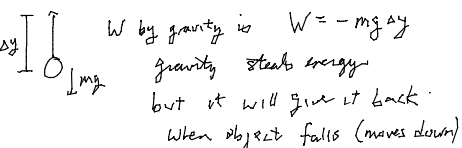 Δy
mg
W by gravity is W = - mgΔy
gravity steals energy
but it will give it back.
when object falls (moves down)